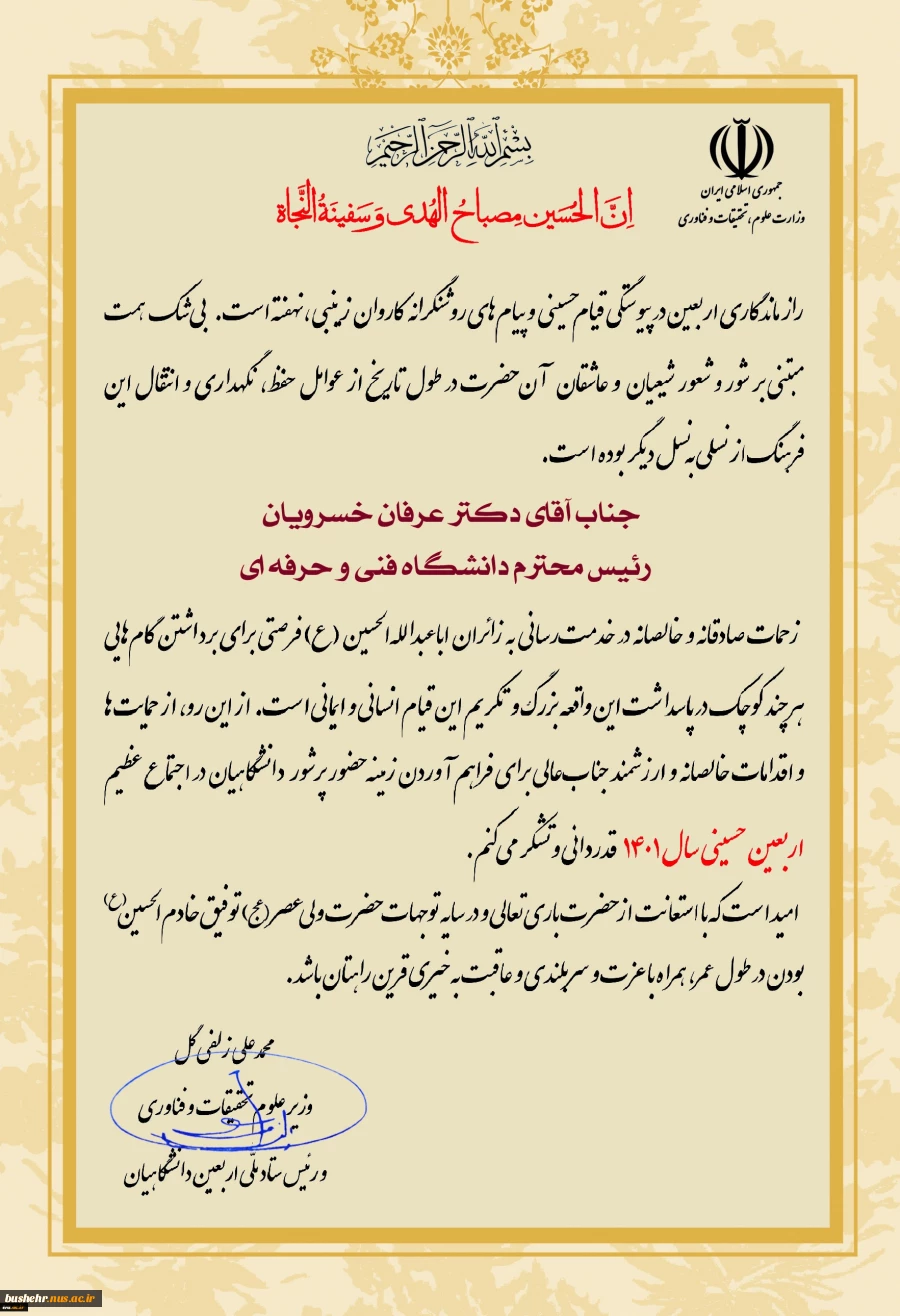 بسم الله الرحمن الرحیم
جمهوری اسلامی ایران
وزارت علوم، تحقیقات و فناوری
اِنَّ الحُسَین مِصباحُ الهُدی وَ سَفینَةُ النَّجاة
راز ماندگاری اربعین در پیوستگی قیام حسینی و پیام های روشنگرانه کاروان زینبی، نهفته است. بی شک همت
مبتنی بر شور و شعور شیعیان و عاشقان آن حضرت در طول تاریخ از عوامل حفظ، نگهداری و انتقال این
فرهنگ از نسلی به نسل دیگر بوده است.
جناب آقای دکتر عرفان خسرویان
رئیس محترم دانشگاه فنی و حرفه ای
زحمات صادقانه و خالصانه در خدمت رسانی به زائران اباعبدالله الحسین (ع) فرصتی برای برداشتن گام هایی
هر چند کوچک در پاسداشت این واقعه بزرگ و تکریم این قیام انسانی و ایمانی است. از این رو، از حمایت ها
و اقدامات خالصانه و ارزشمند جناب عالی برای فراهم آوردن زمینه حضور پرشور دانشگاهیان در اجتماع عظیم
اربعین حسینی سال ۱۴۰۱ قدردانی و تشکر می کنم.
امید است که با استعانت از حضرت باری تعالی و در سایه توجهات حضرت ولی عصر (عج) توفیق خادم الحسین (ع)
بودن در طول عمر، همراه با عزت و سربلندی و عاقبت به خیری قرین راهتان باشد.
محمد علی زلفی گل
وزیر علوم تحقیقات و فناوری
و رئیس ستاد ملّی اربعین دانشگاهیان
bushehr.nus.ac.ir